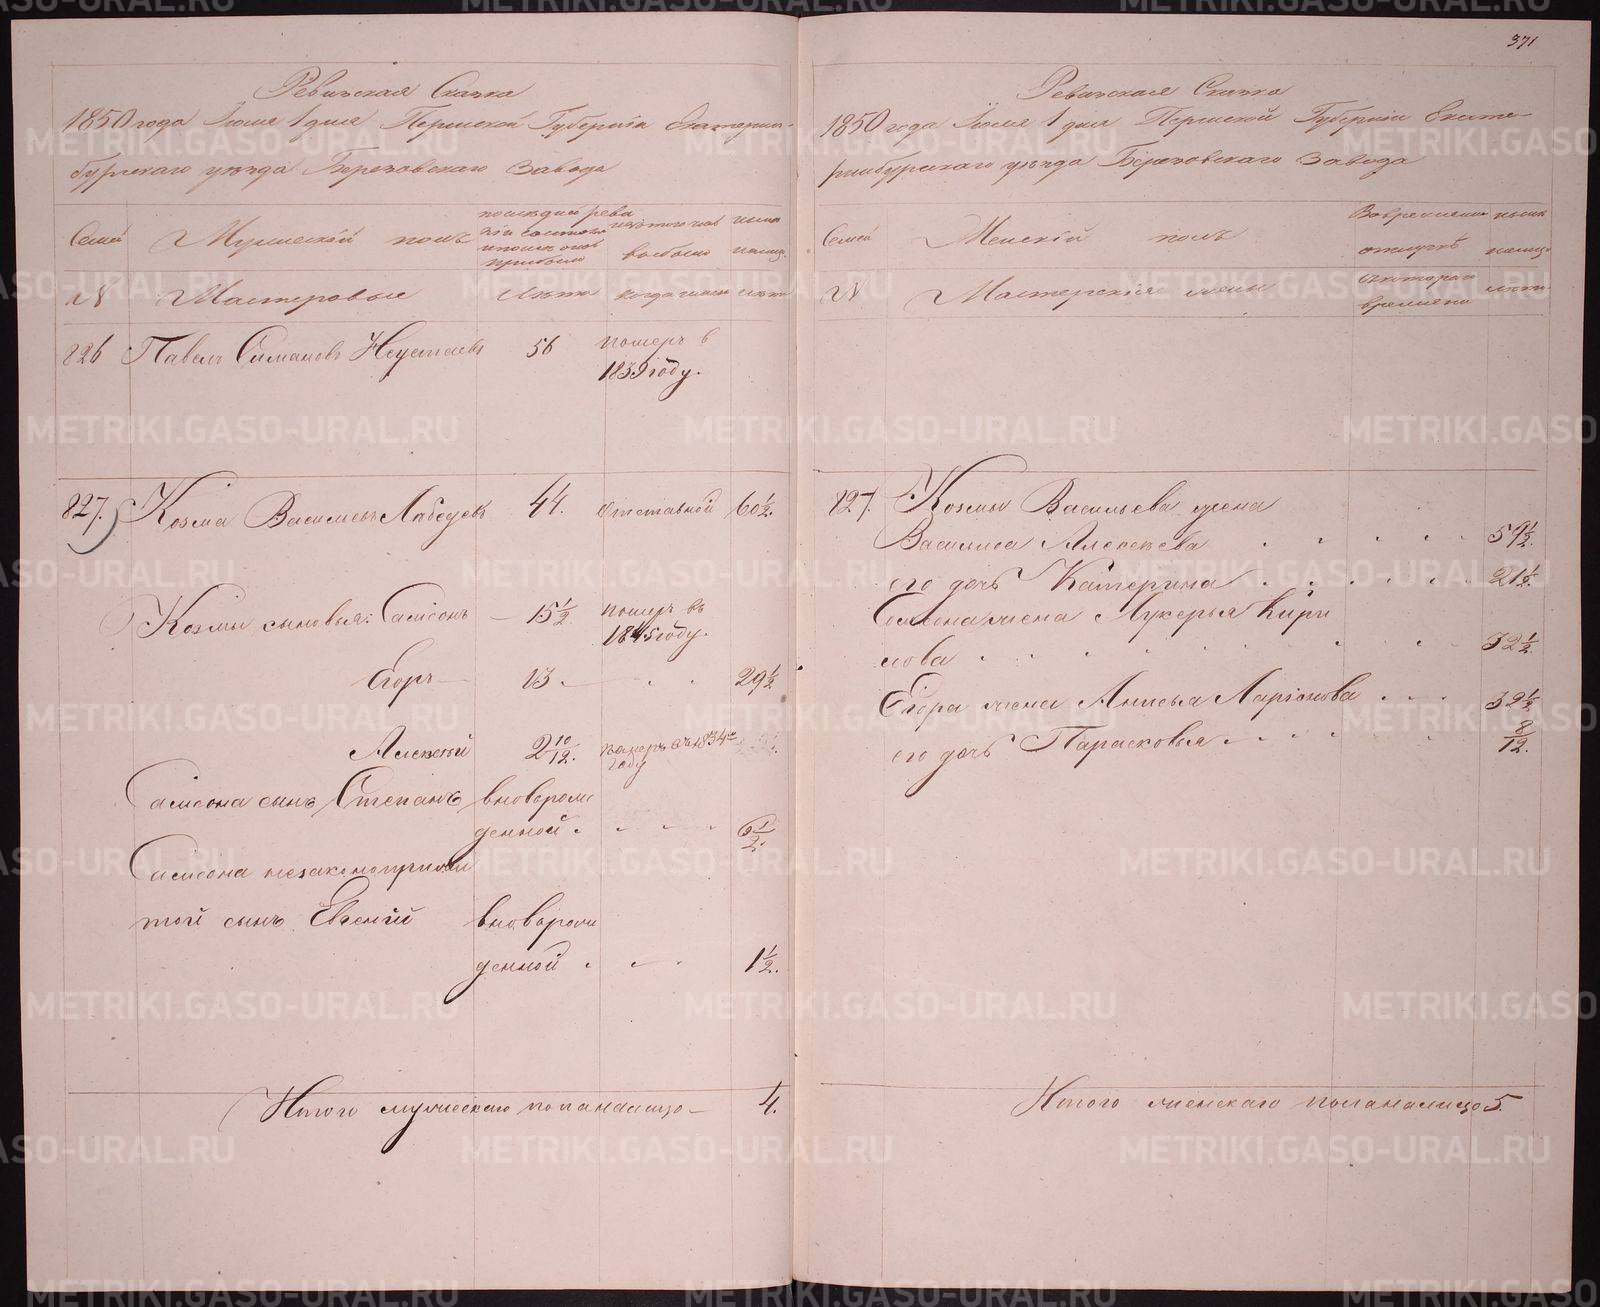 371
Ревизская Сказка
1850 года Июня 1 дня Пермской Губернiи Екатерин-
бургскаго уѣзда Березовскаго Завода
Семей
Мужескiй полъ
последней ревизiи состояло и после оной прибыло
изъ того числа выбыло
ныне налицо
N
Мастеровые
Лѣта
когда именно
лѣта
826 Павелъ Симановъ Неустаевъ 56 померъ в
1839 году.
827. Козма Васильевъ Лебедевъ 44. отставной 60 1/2.
Козмы сыновья: Самсонъ – 15 1/2 померъ въ
1845 году.
Егоръ – 13 - . . 29 1/2
Алексей 2 10/12. померъ въ 1834м
году
Самсона сынъ Степанъ вноворож
денной . . . . 6 1/2.
Самсона незаконоприжи
той сынъ Евгенiй вноворож
денной . . . 1 1/2.
Итого мужескаго пола налицо – 4.
Ревизская Сказка
1850 года Июня 1 дня Пермской Губернiи Екате-
ринбурскаго уѣзда Березовскаго Завода
Семей
Женскiй полъ
Во временной отлучкѣ
ныне налицо
N
Мастерскiя жены
с котораго времени
лета
827. Козмы Васильева жена
Василиса Алексеева . . . . . 59 1/2.
его дочь Катерина . . . . . 21 1/2.
Самсона жена Лукерья Кири
лова . . . . . . . . 32 1/2.
Егора жена Анисья Ларiонова . . . 32 1/2
его дочь Парасковья . . . . . 8/12.
Итого женскаго пола налицо 5.